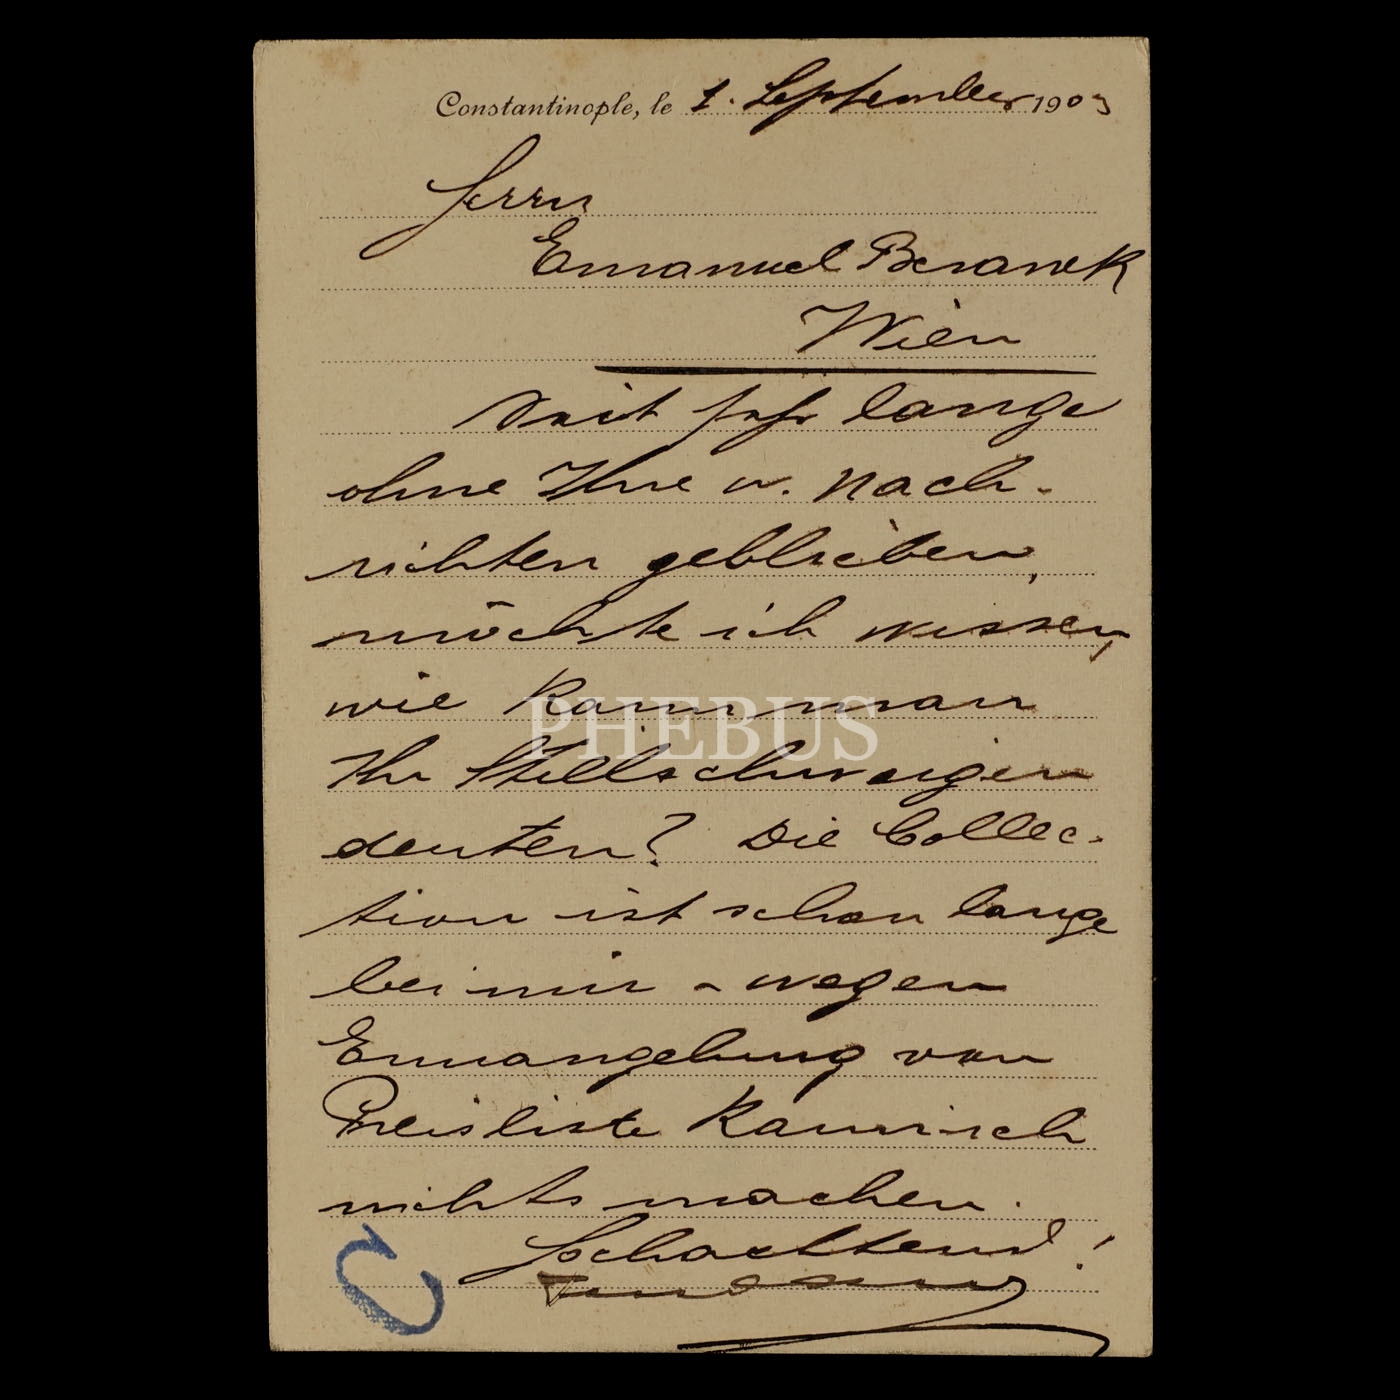 Constantinople, le 1. September 1903
Herrn
Emanuel Beranek
Wien
Seit sehr lange
ohne Ihre w. Nach-
richten geblieben,
möchte ich wissen,
wie kann man
PHEBUS
Ihr Stillschweigen
deuten? Die Collec-
tion ist schon lange
bei mir - wegen
Ermangelung von
Preisliste kann ich
nichts machen.
Hochachtend!